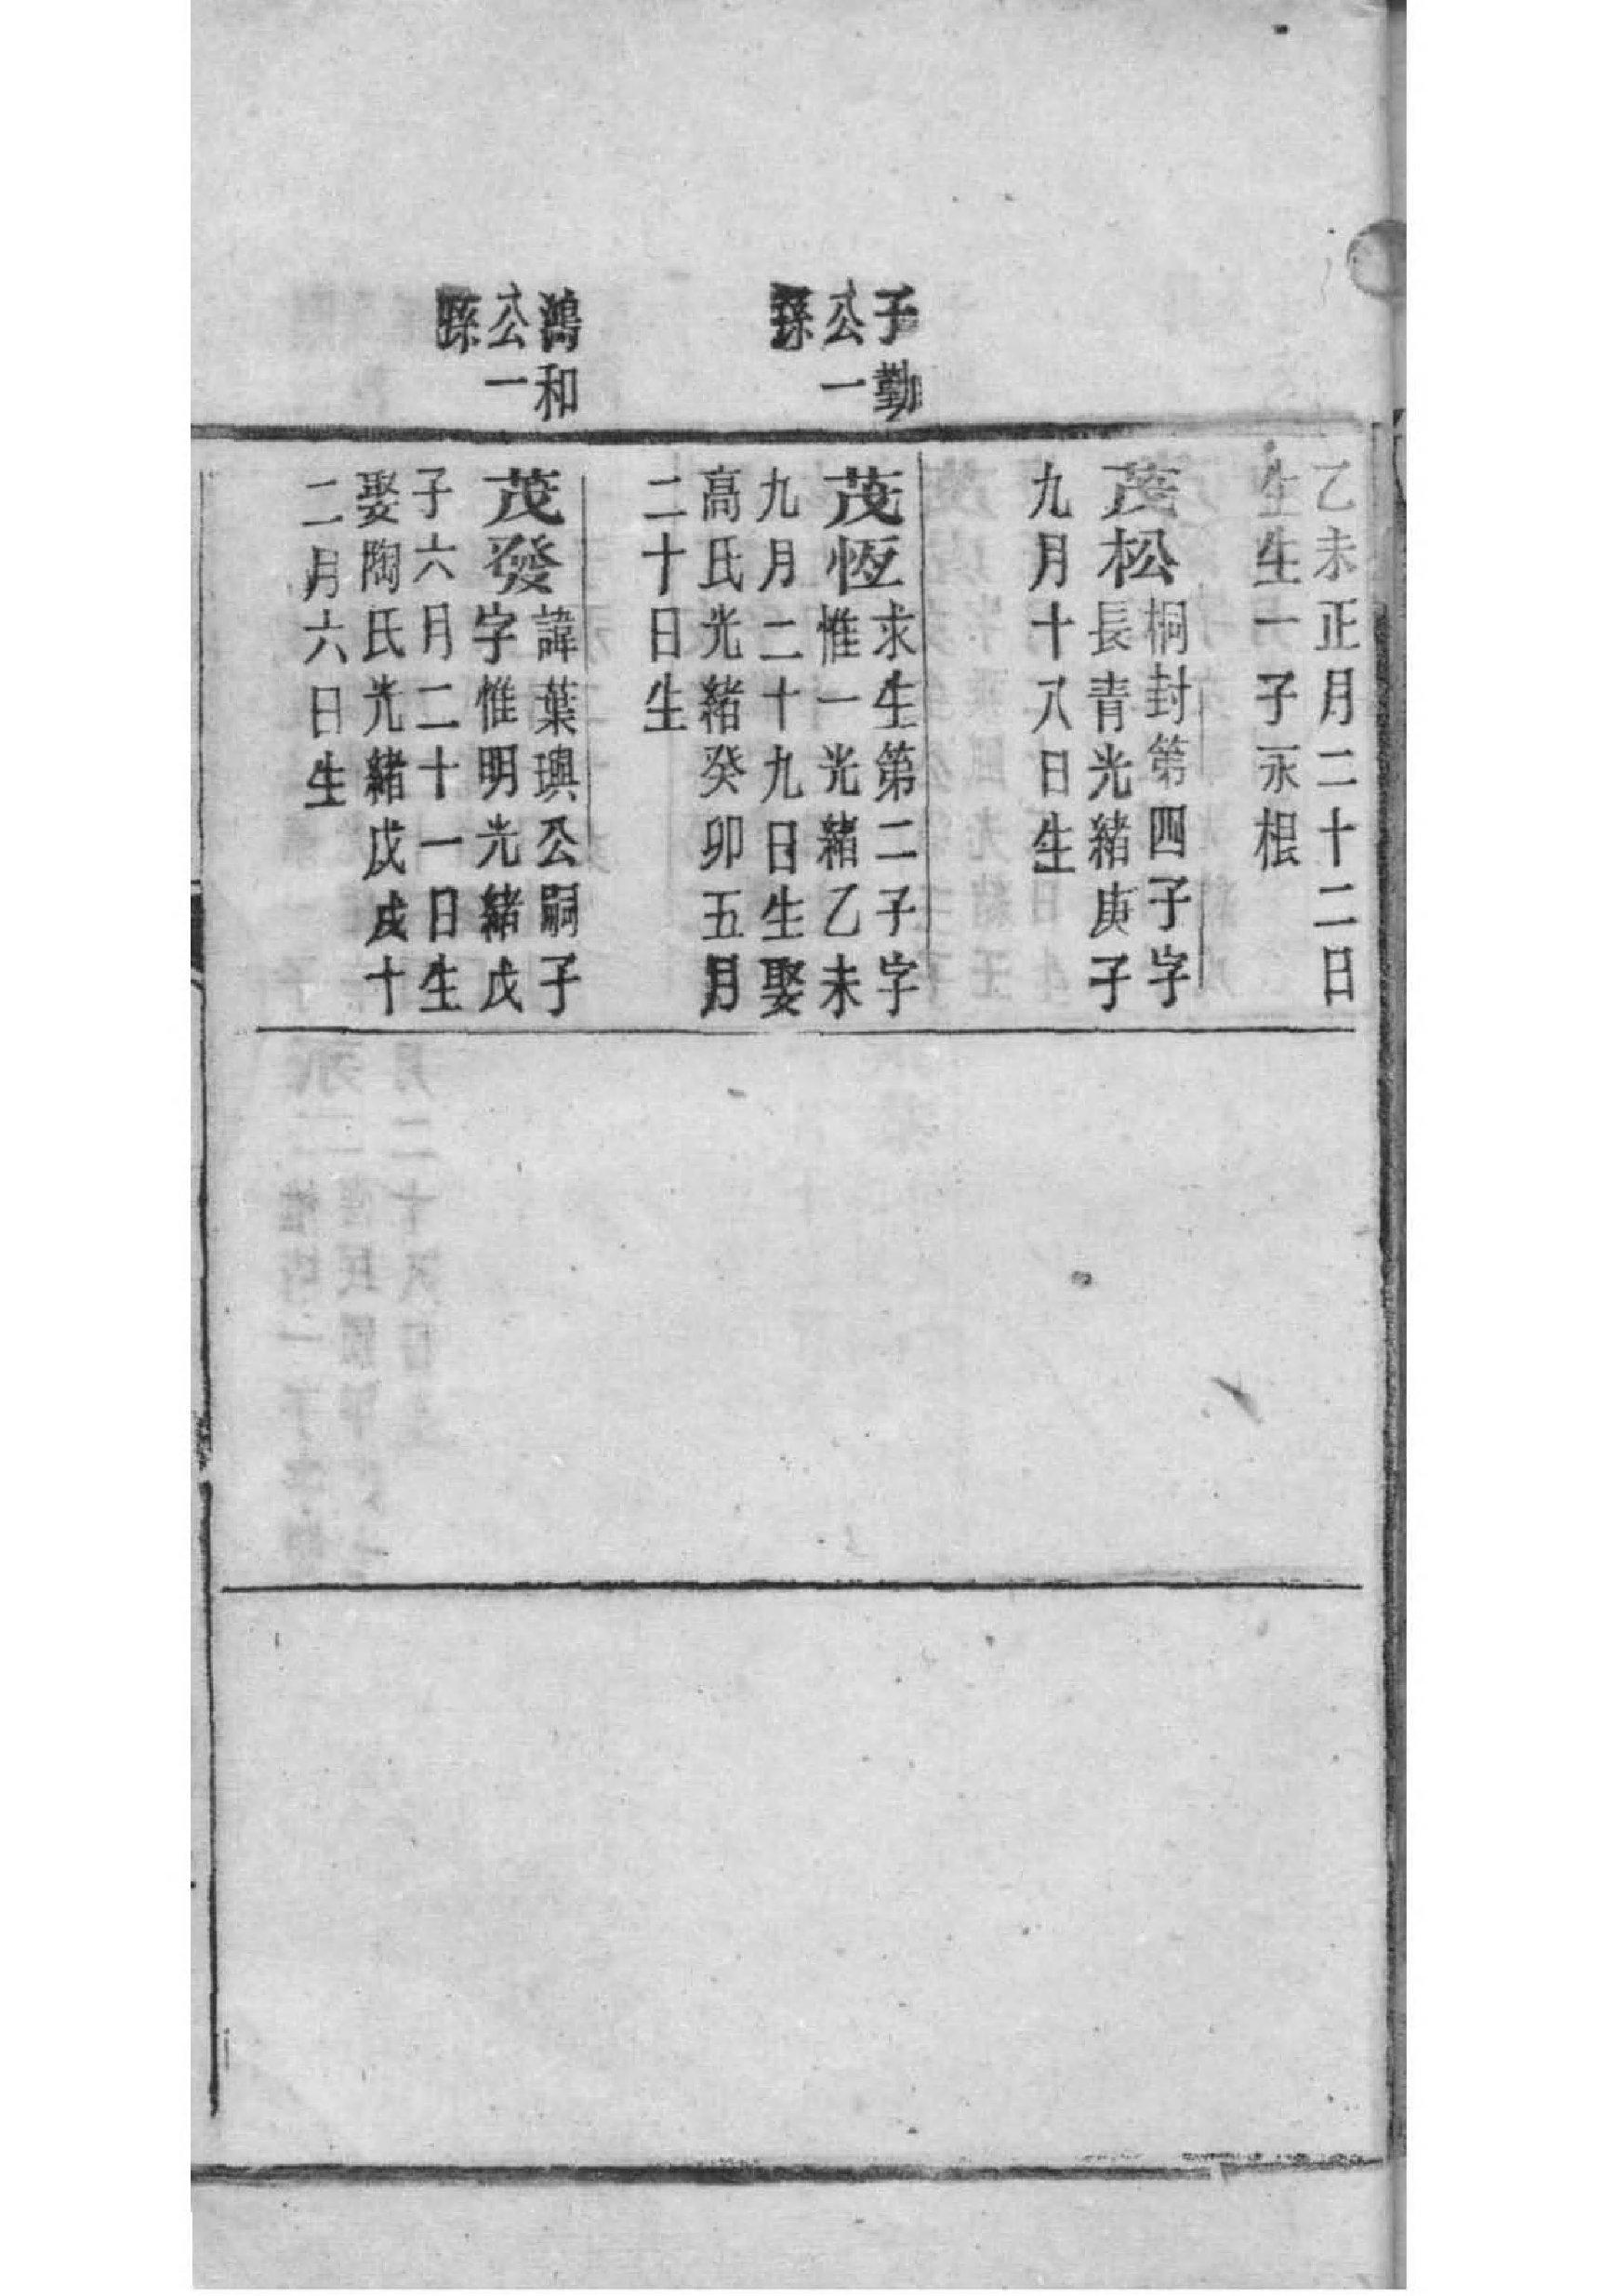 乙未正月二十二日
生生一子永根
茂松桐封第四子字
長青光緒庚子
九月十八日生
子勤
公一
孫
茂恆求生第二子字
惟一光緒乙未
九月二十九日生娶
高氏光緒癸卯五月
二十日生
鴻和
公一
孫
茂發諱葉璵公嗣子
字惟明光緒戊
子六月二十一日生
娶陶氏光緒戊戌十
二月六日生